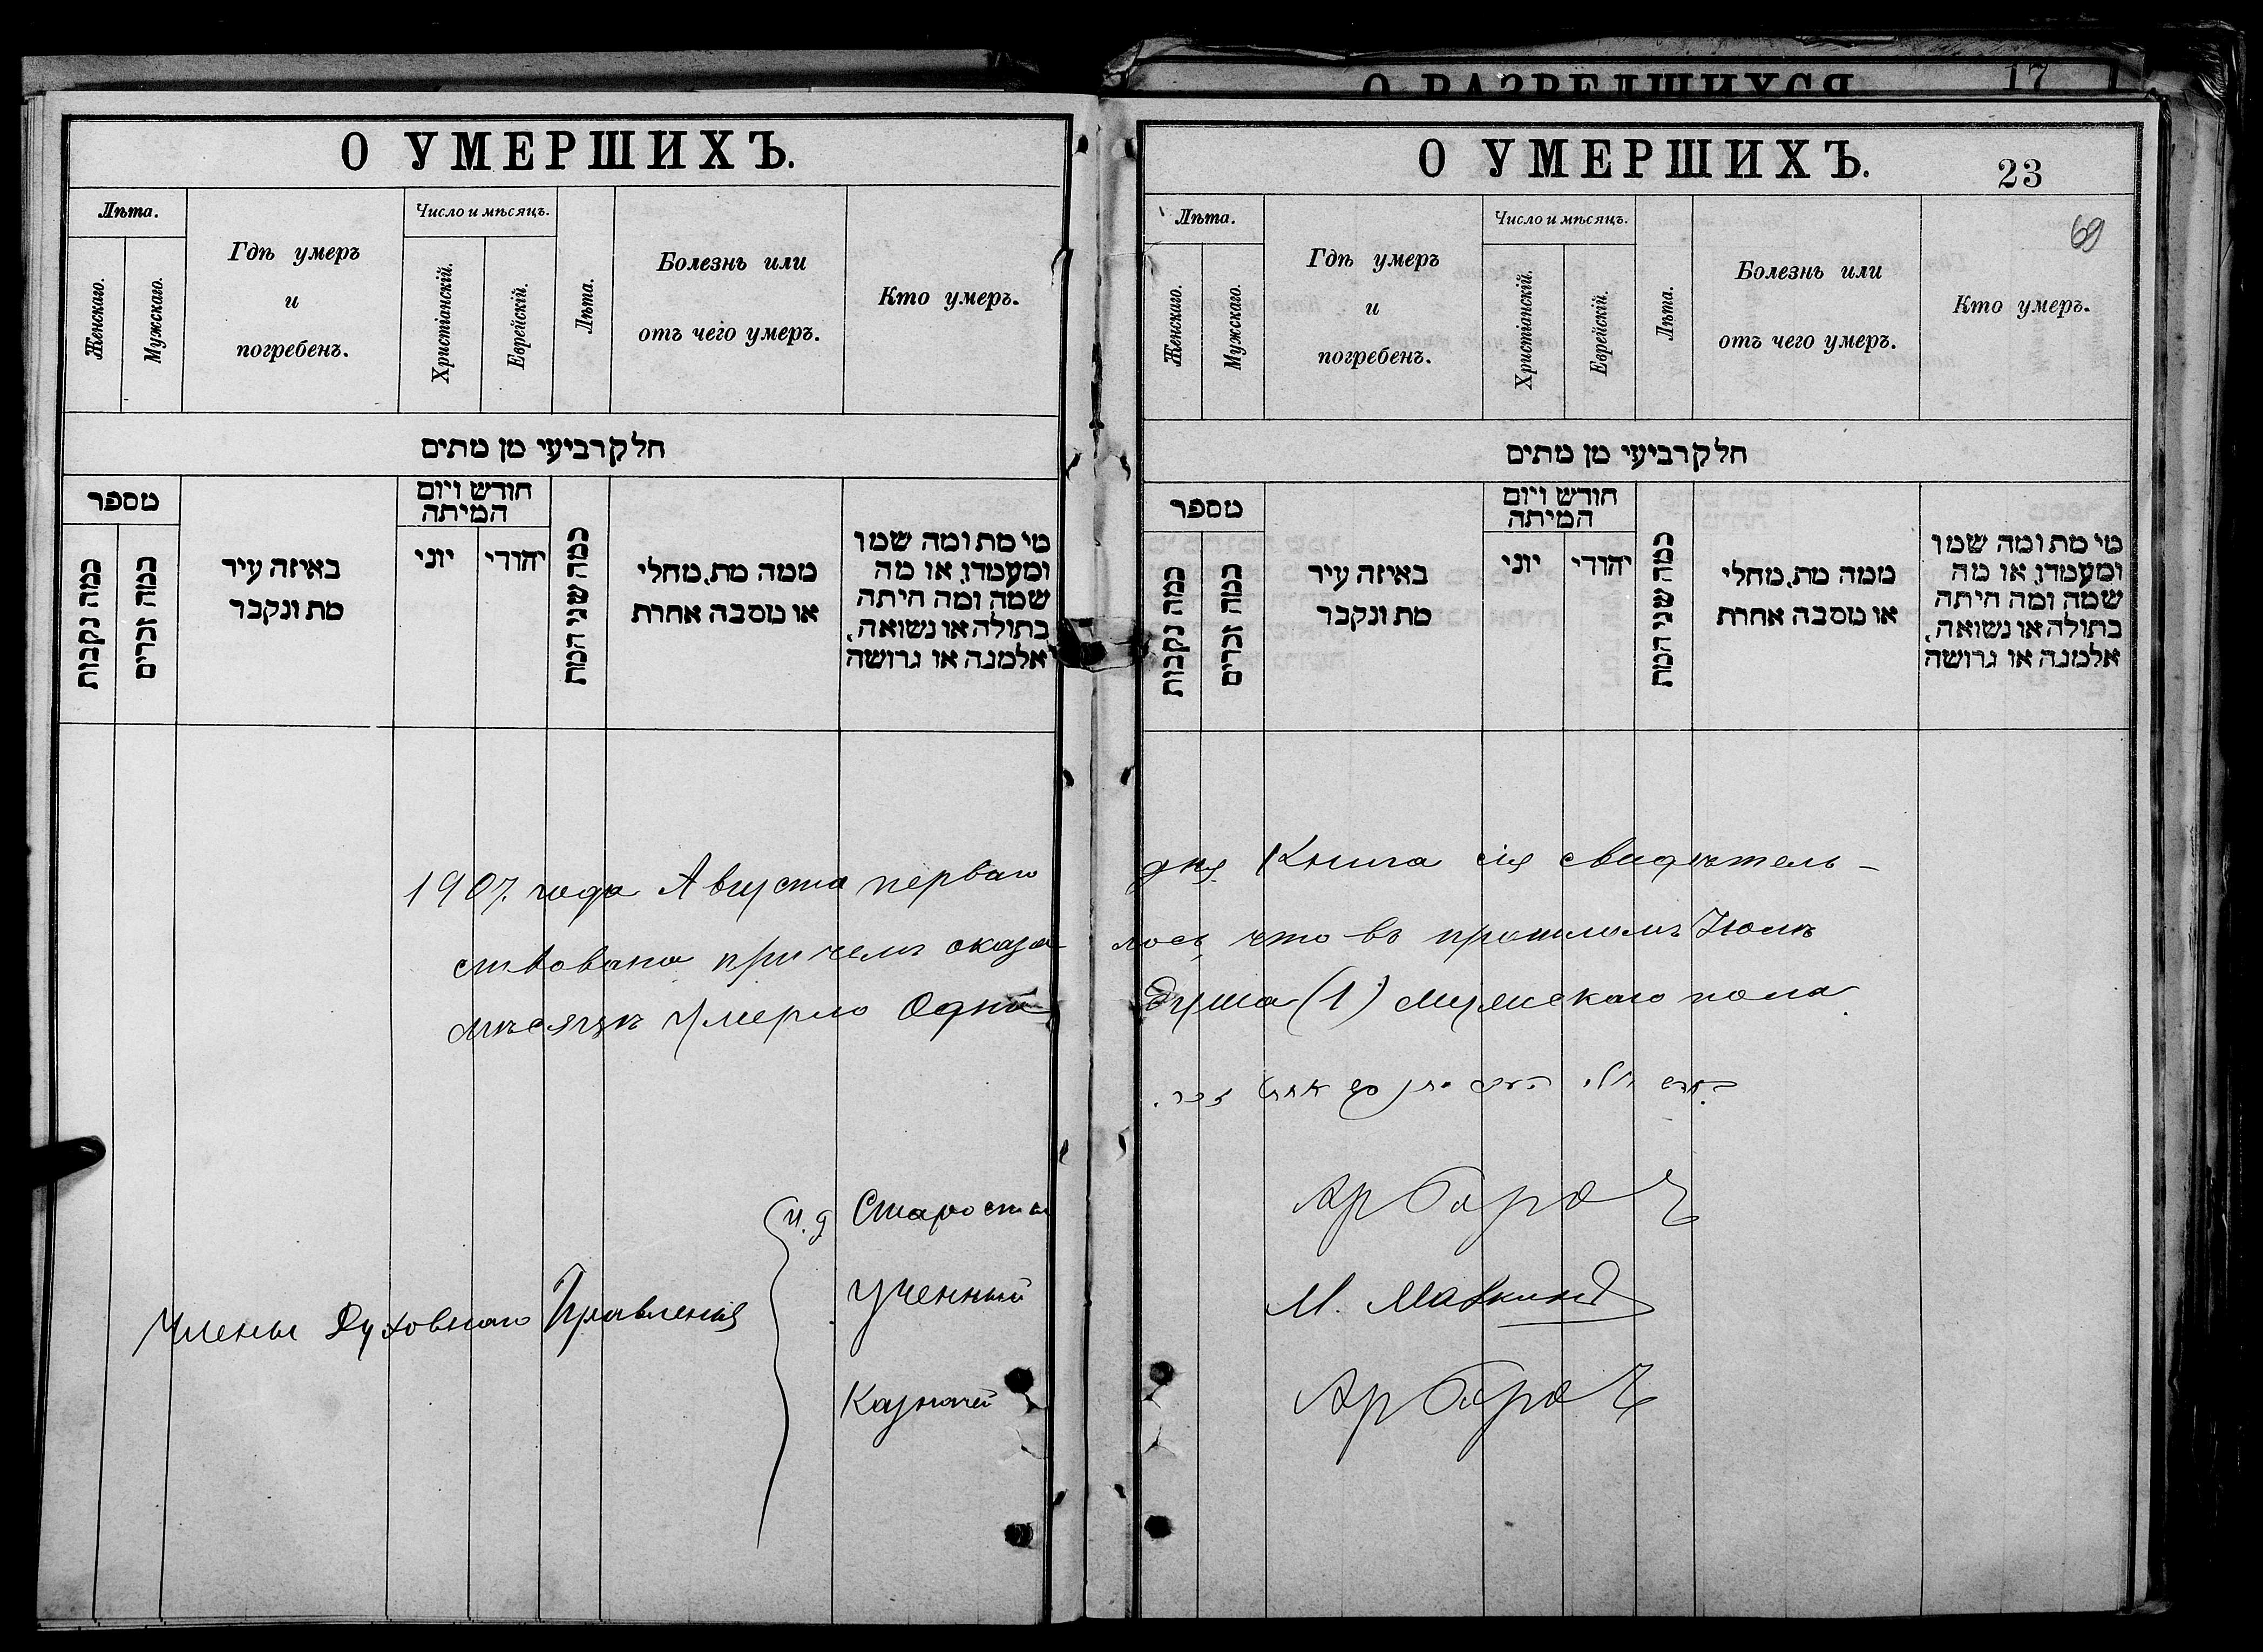 О РАЗВЕДШИХСЯ
17
О УМЕРШИХЪ.
Лѣта.
Женскаго.
Мужскаго.
Гдѣ умеръ
и
погребенъ.
Число и мѣсяцъ.
Христіанскій.
Еврейскій.
Лѣта.
Болезнь или
отъ чего умеръ.
Кто умеръ.
חלק רביעי מן מתים
מספר
כמה נקבות
כמה זכרים
באיזה עיר
מת ונקבר
חודש ויום
המיתה
יוני
יהודי
כמה שני המת
ממה מת, מחלי
או מסבה אחרת
מי מת ומה שמו
ומעמדו, או מה
שמה ומה היתה
בתולה או נשואה,
אלמנה או גרושה
О УМЕРШИХЪ.
23
69
Лѣта.
Женскаго.
Мужскаго.
Гдѣ умеръ
и
погребенъ.
Число и мѣсяцъ.
Христіанскій.
Еврейскій.
Лѣта.
Болезнь или
отъ чего умеръ.
Кто умеръ.
חלק רביעי מן מתים
מספר
כמה נקבות
כמה זכרים
באיזה עיר
מת ונקבר
חודש ויום
המיתה
יוני
יהודי
כמה שני המת
ממה מת, מחלי
או מסבה אחרת
מי מת ומה שמו
ומעמדו, או מה
שמה ומה היתה
בתולה או נשואה,
אלמנה או גרושה
1907 года Августа перваго дня Книга сія свидѣтель-
ствована при чемъ оказа-лось, что въ прошломъ Іюлѣ
мѣсяцѣ умерло Одна душа (1) мужскаго пола.
Члены Духовнаго Правленія
И. д. Старосты
Ученный
Казначей
М.